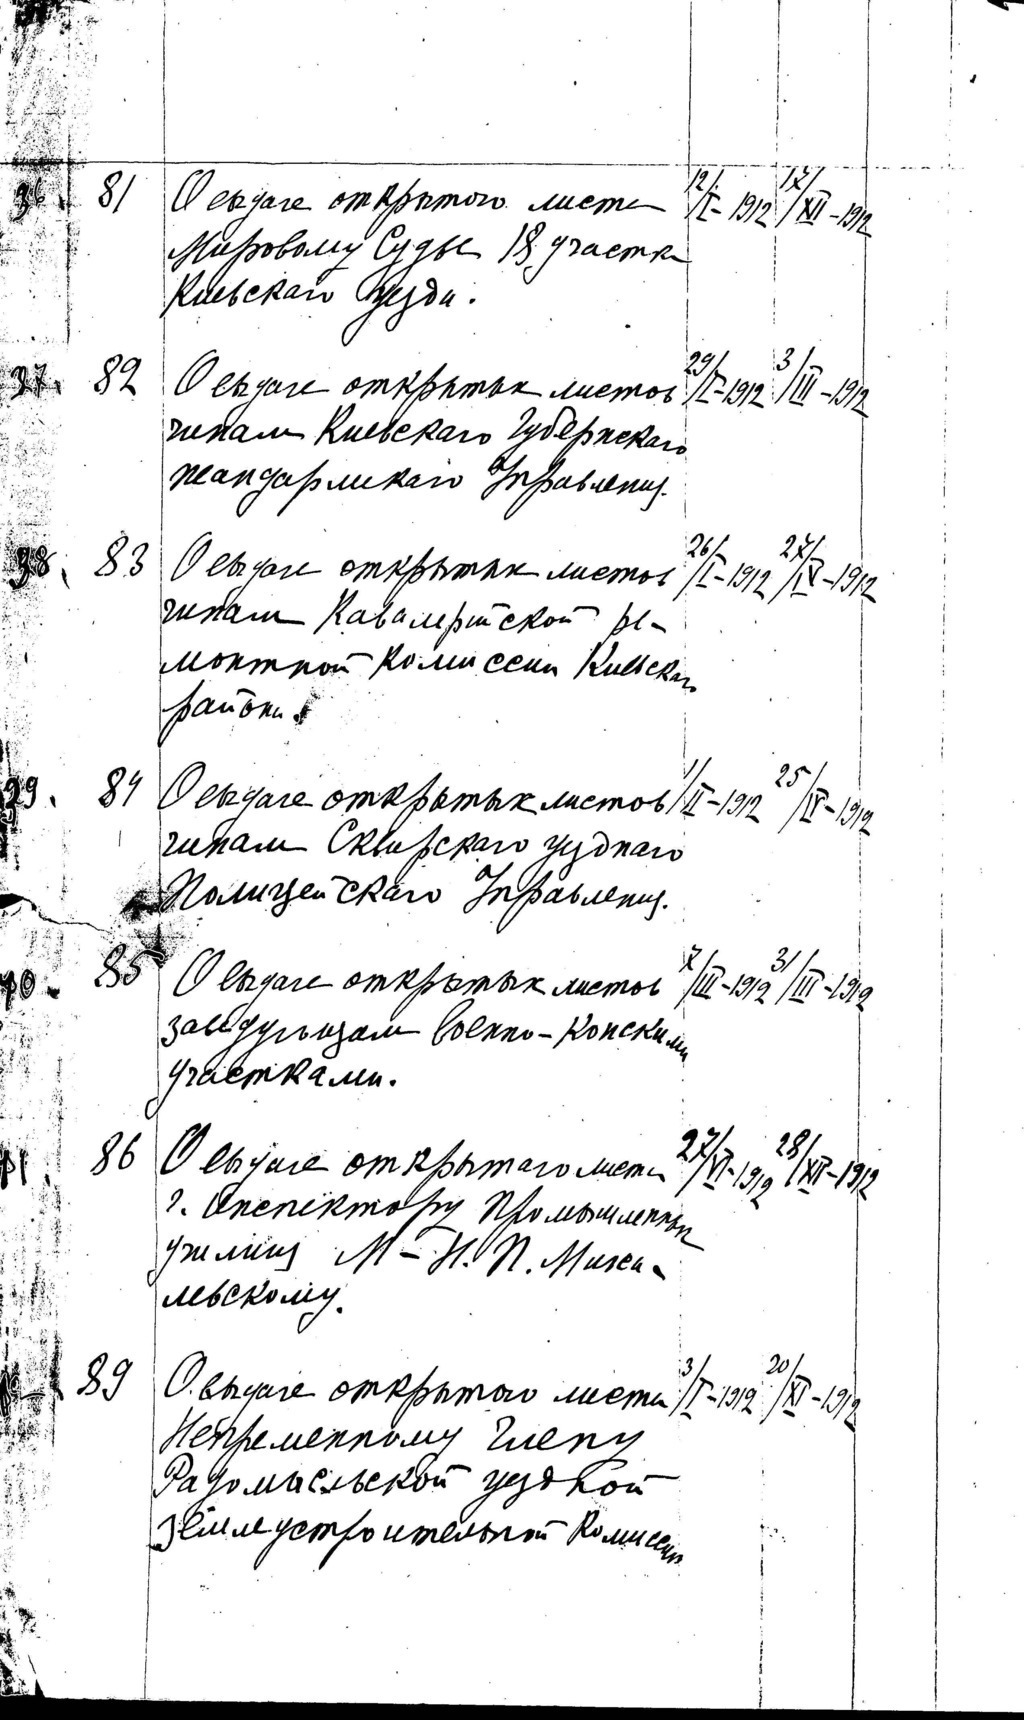 36. 81 О выдаче открытого листа 12/I-1912 17/XII-1912
Мировому Судье 18 участка
Киевскаго уезда.
37. 82 О выдаче открытых листов 29/I-1912 3/III-1912
чинам Киевскаго Губернскаго
жандармскаго Управления.
38. 83 О выдаче открытых листов 26/I-1912 27/IV-1912
чинам Кавалерийской ре-
монтной Комиссии Киевскаго
района.
39. 84 О выдаче открытых листов 1/II-1912 25/IV-1912
чинам Сквирскаго уезднаго
Полицейскаго Управления.
40. 85 О выдаче открытых листов 7/III-1912 31/III-1912
заведующим военно-конскими
участками.
86 О выдаче открытаго листа 27/VI-1912 28/XII-1912
г. Инспектору Промышленных
училищ М-Н.П. Миха-
левскому.
89 О выдаче открытого листа 3/I-1912 20/XI-1912
Непременному Члену
Радомысльской уездной
землеустроительной Комиссии